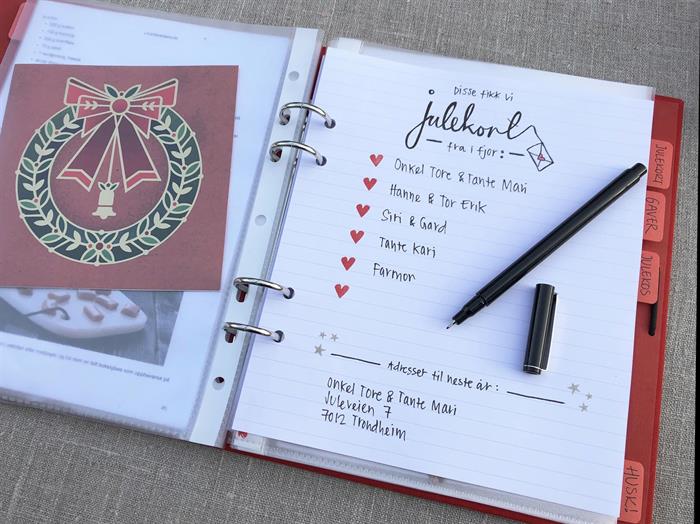 Disse fikk vi
julekort
fra i fjor:
Onkel Tore & Tante Mari
Hanne & Tor Erik
Siri & Gard
Tante Kari
Farmor
Adresser til neste år:
Onkel Tore & Tante Mari
Juleveien 7
7012 Trondheim
JULEKORT
GAVER
JULEKOS
HUSK!